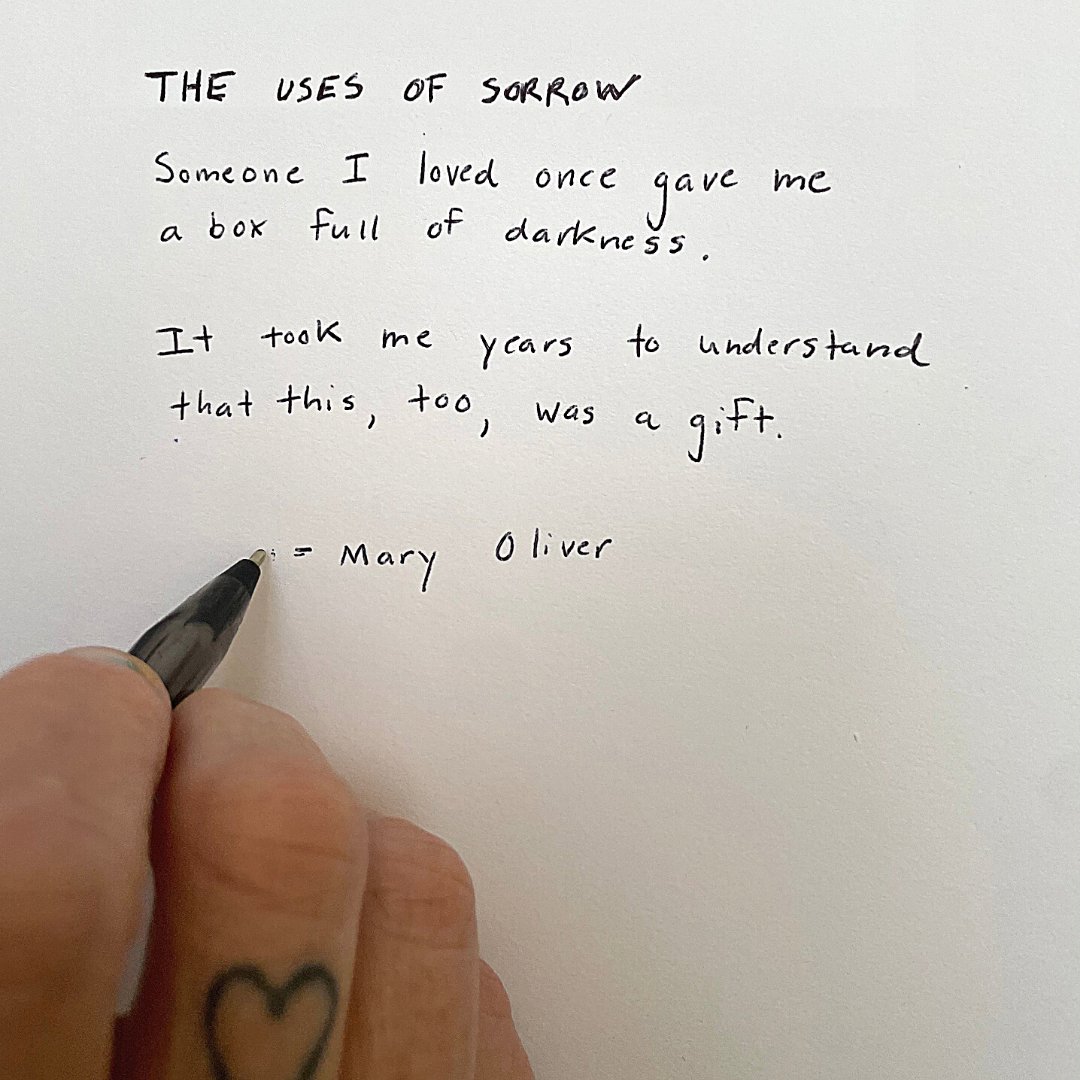 THE USES OF SORROW
Someone I loved once gave me
a box full of darkness.
It took me years to understand
that this, too, was a gift.
= Mary Oliver